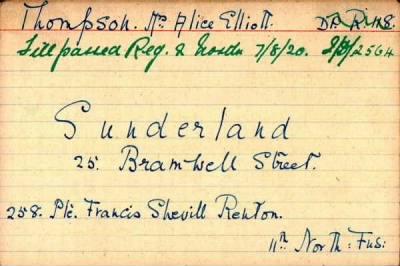 Thompson. Mrs Alice Elliott.
Till passed Reg. & Nordn 7/8/20. 2564
Sunderland
25. Bramwell Street.
258. Pte. Francis Shevill Renton.
11th North: Fus: